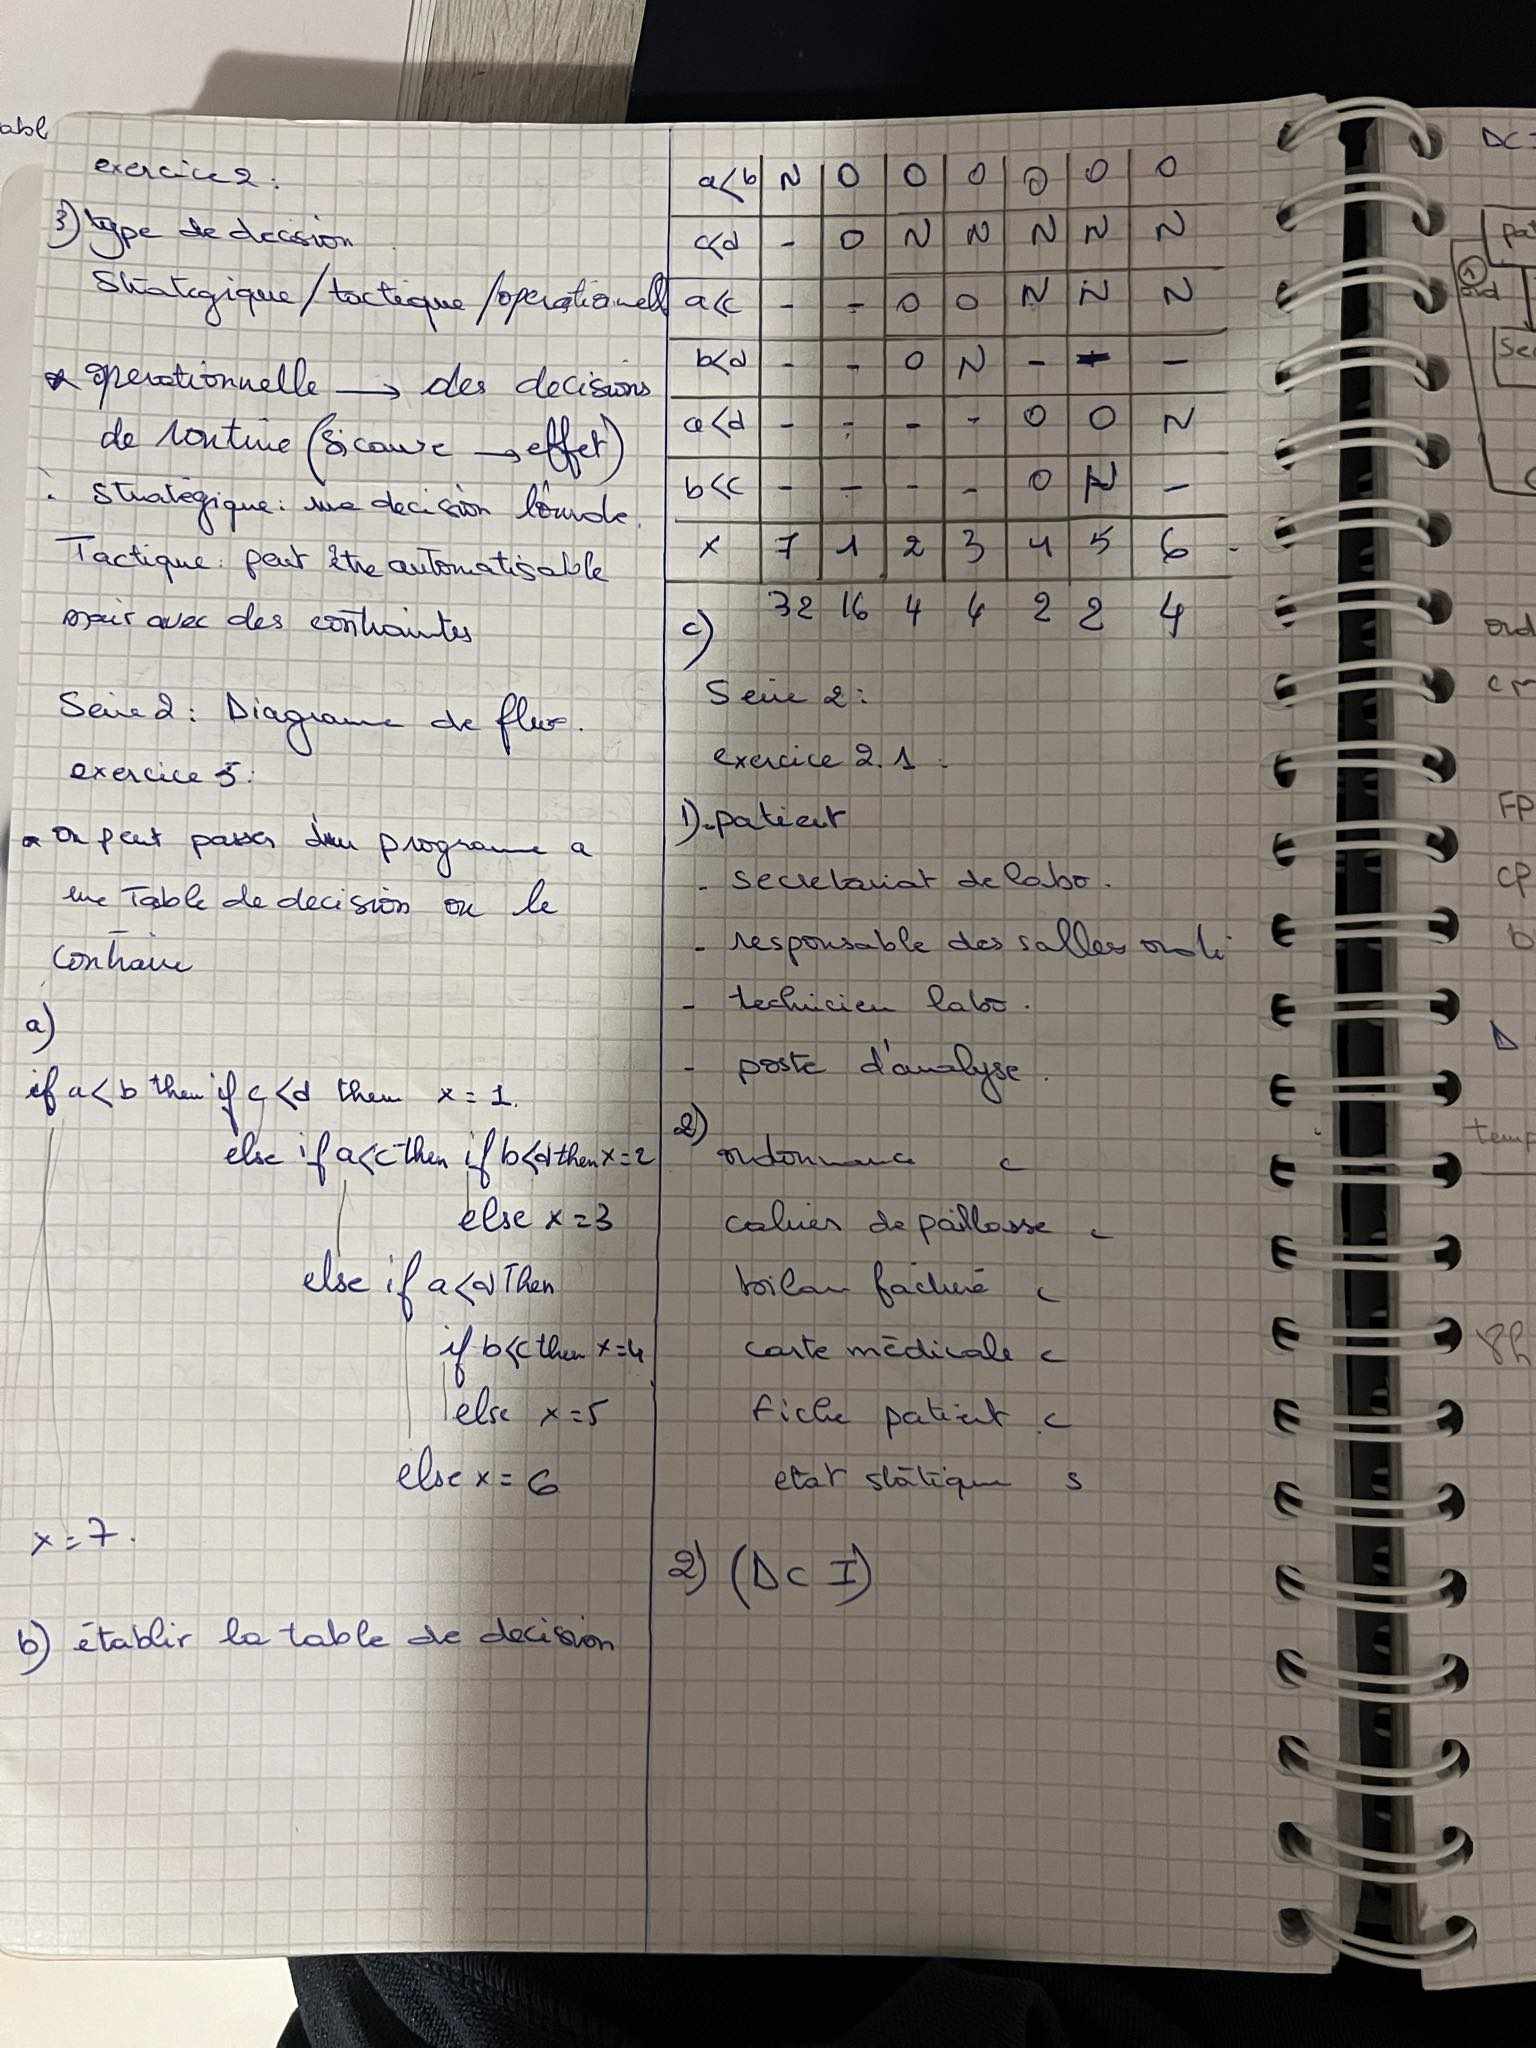 abl
exercice 2 :
3) type de decision
Stratégique / tactique / operationnell
* operationnelle → des decisions
de routine (si cause → effet)
: stratégique : une decision lourde.
Tactique : peut être automatisable
mais avec des contraintes
Serie 2 : Diagrame de flux.
exercice 5 :
on peut passer d'un programe a
une Table de decision ou le
contraire
a)
if a<b then if c<d then x=1.
else if a<c then if b<d then x=2
else x=3
else if a<d Then
if b<c then x=4
else x=5
else x=6
x=7.
b) établir la table de decision
a<b N O O O O O O
c<d - O N N N N N
a<c - - O O N N N
b<d - - O N - - -
a<d - - - - O O N
b<c - - - - O N -
x 7 1 2 3 4 5 6
c) 32 16 4 4 2 2 4
Serie 2 :
exercice 2.1 :
1) - patient
- secretariat de labo.
- responsable des salles
- technicien labo.
- poste d'analyse.
2)
ordonnance c
cahier de paillasse c
bilan facturé c
carte médicale c
fiche patient c
etat statique s
2) (DC I)
DC
pa
1
ord
Se
ord
cm
FP
CP
b
D
temp
8h